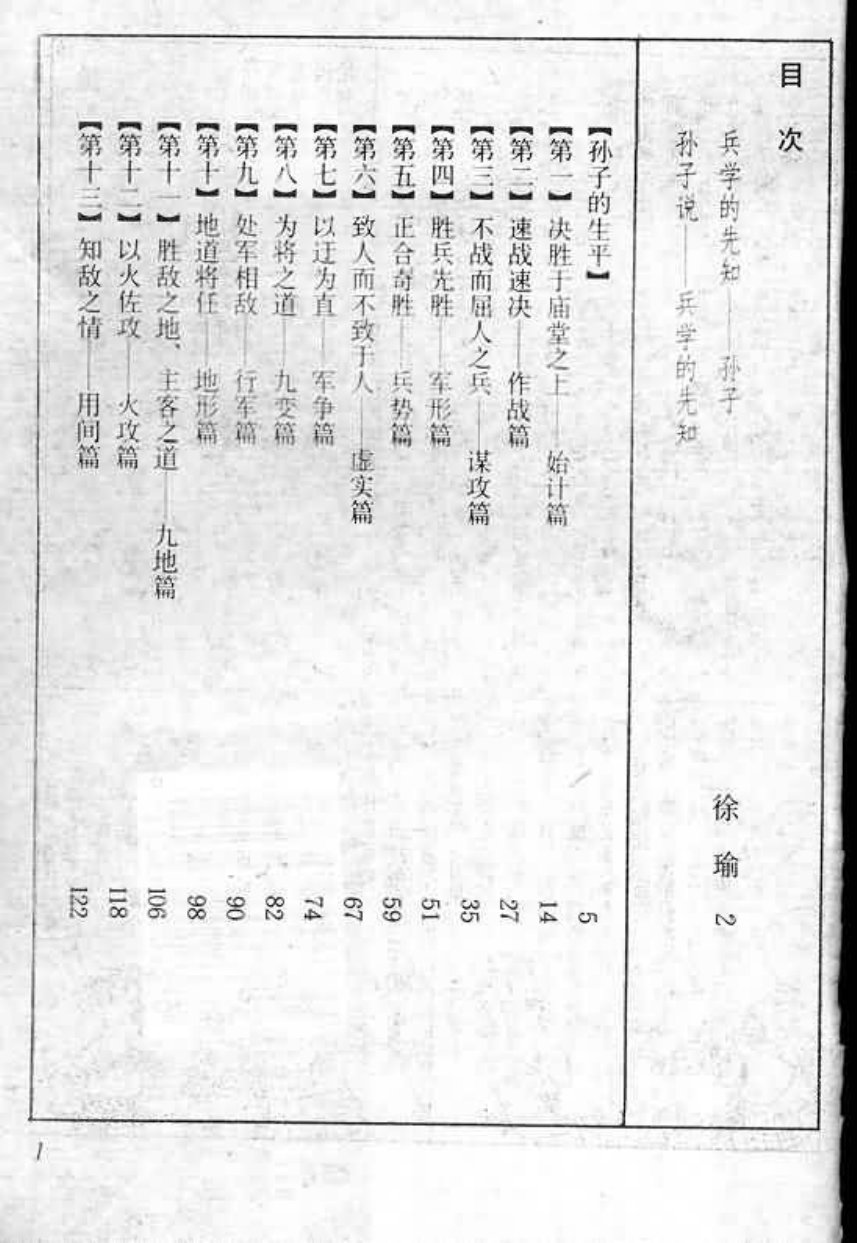 目次
兵学的先知——孙子 徐瑜 2
孙子说——兵学的先知
【孙子的生平】 5
【第一】决胜于庙堂之上——始计篇 14
【第二】速战速决——作战篇 27
【第三】不战而屈人之兵——谋攻篇 35
【第四】胜兵先胜——军形篇 51
【第五】正合奇胜——兵势篇 59
【第六】致人而不致于人——虚实篇 67
【第七】以迂为直——军争篇 74
【第八】为将之道——九变篇 82
【第九】处军相敌——行军篇 90
【第十】地道将任——地形篇 98
【第十一】胜敌之地、主客之道——九地篇 106
【第十二】以火佐攻——火攻篇 118
【第十三】知敌之情——用间篇 122
1